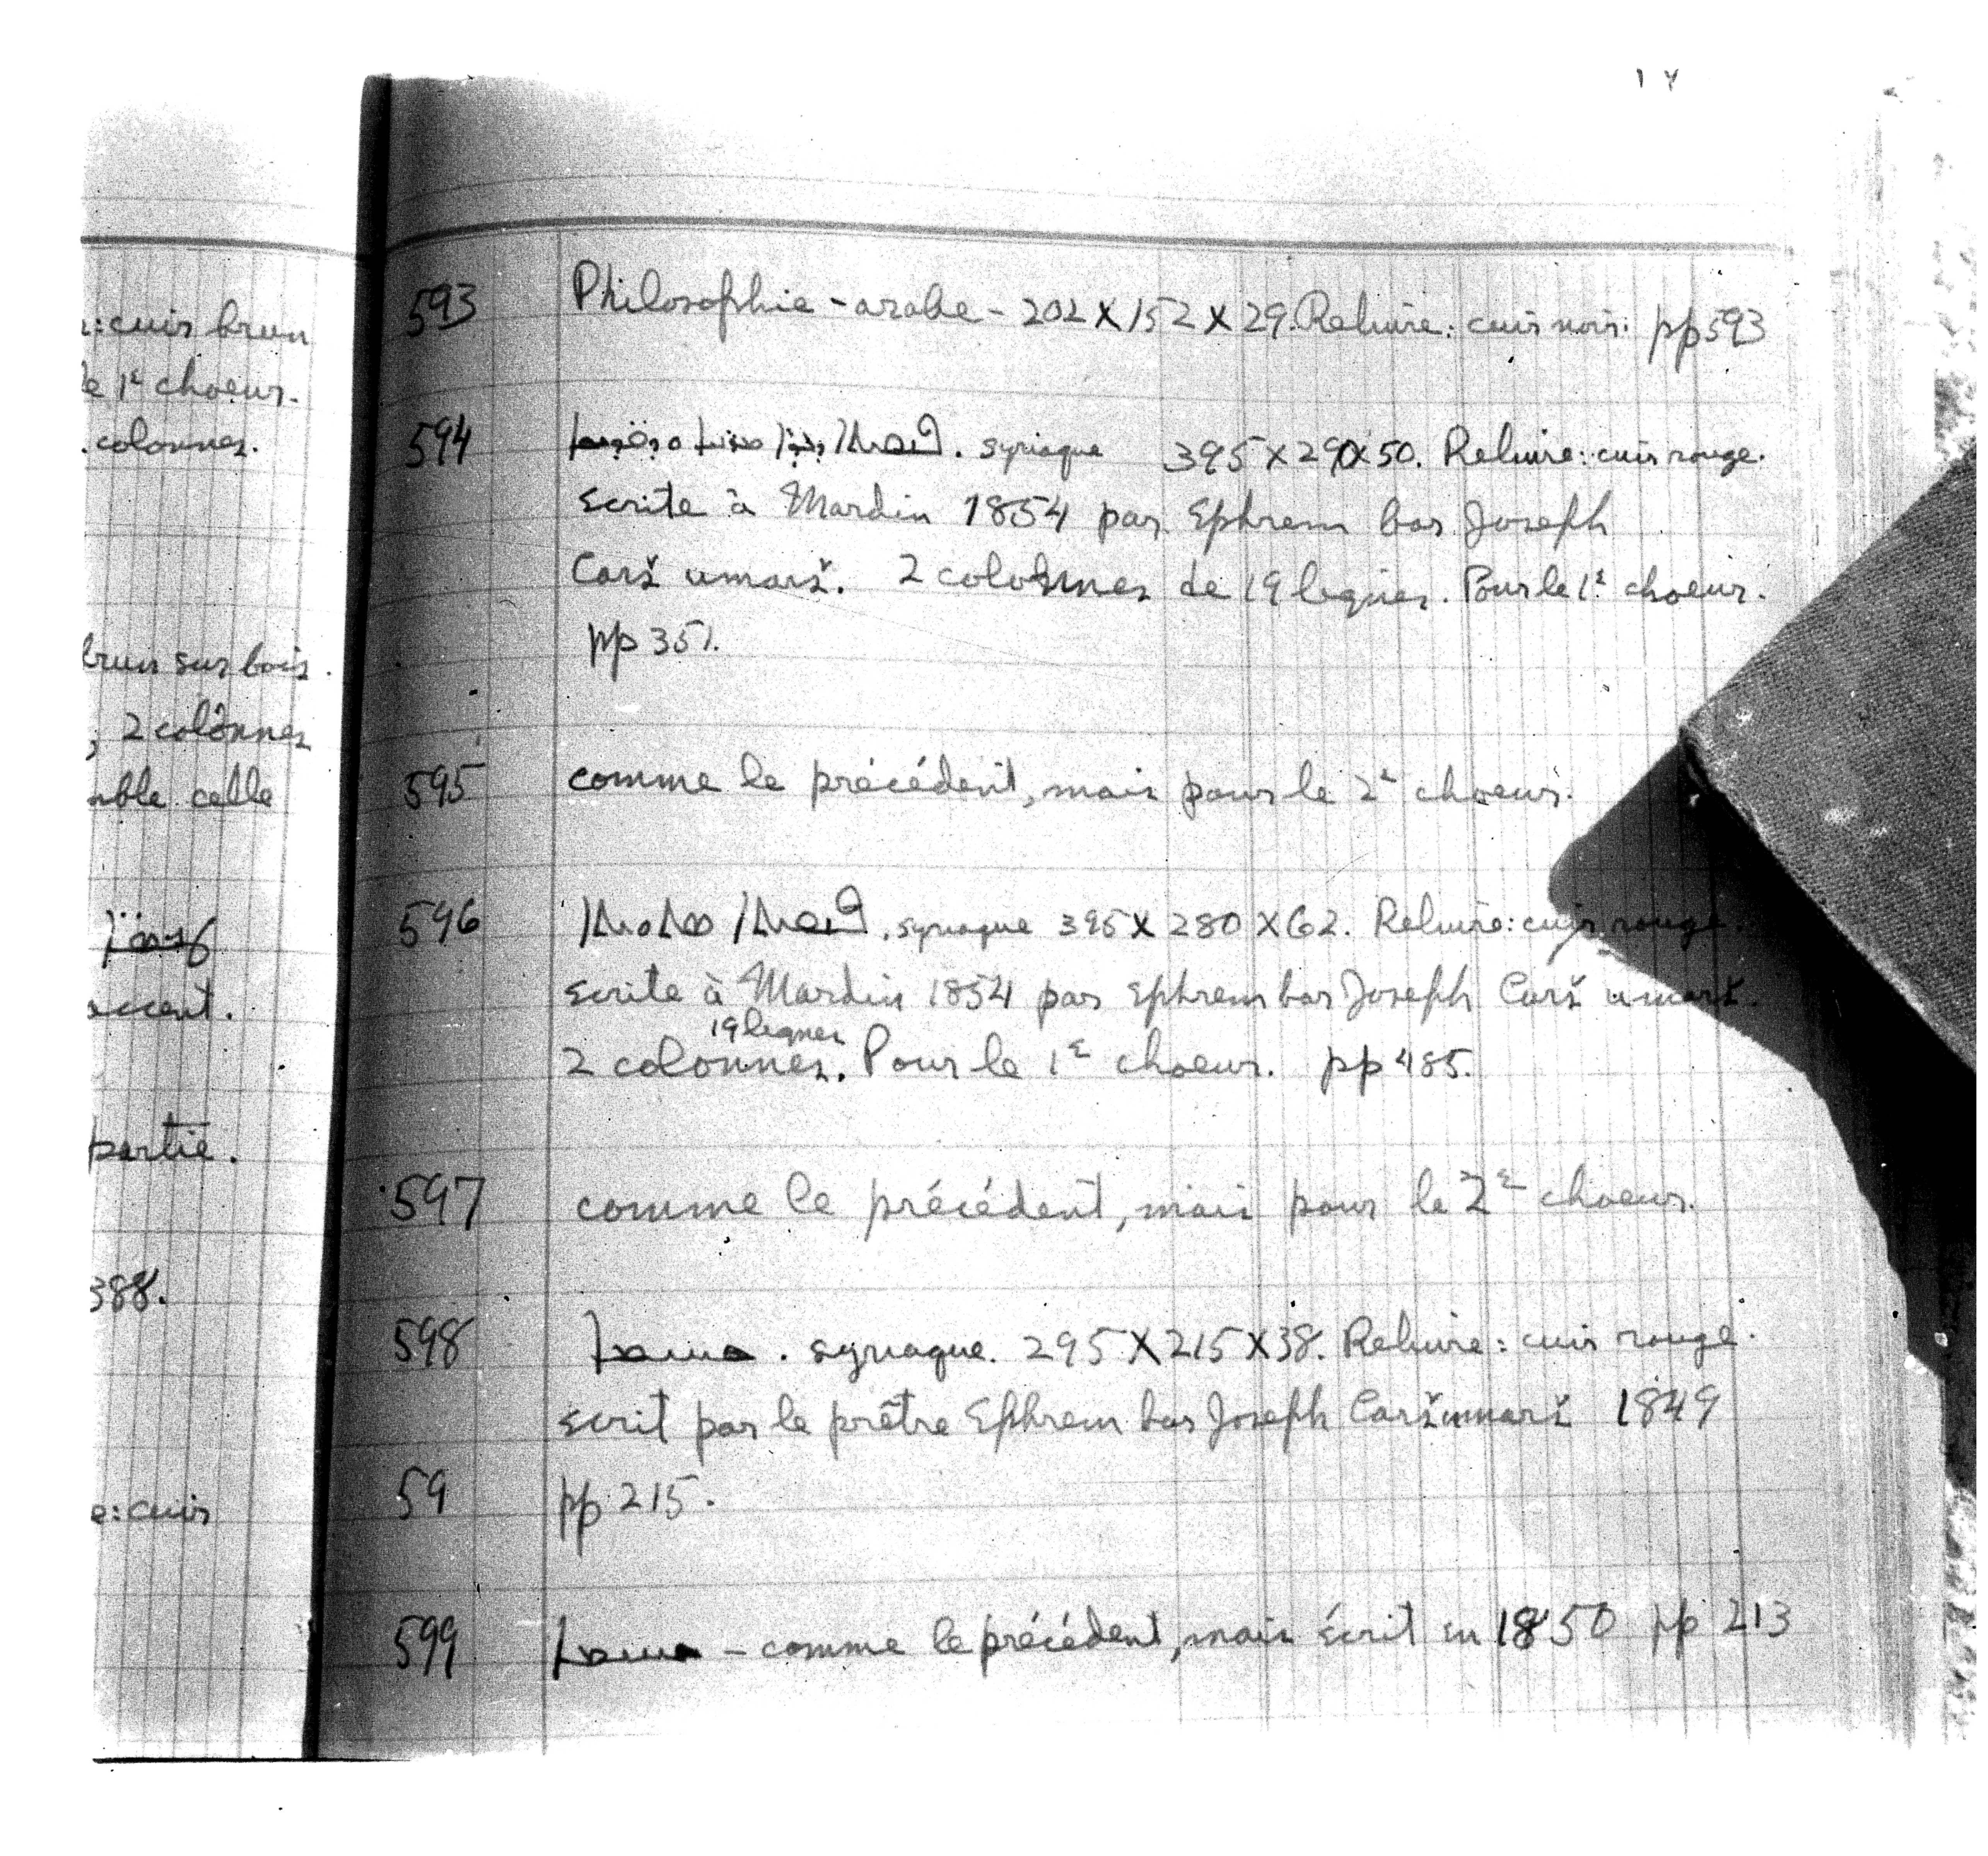 : cuir brun
le 1ᵉ choeur.
. colonnes.
brun sur bois.
; 2 colonnes
celle
accent.
partie.
388.
e: cuir
593 Philosophie - arabe - 202 X 152 X 29. Reliure: cuir noir. pp 593
594 . syriaque 395 X 290 X 50. Reliure: cuir rouge.
Ecrite à Mardin 1854 par Ephrem bar Joseph
Carš umarš. 2 colonnes de 19 lignes. Pour le 1ᵉ choeur.
pp 351.
595 comme le précédent, mais pour le 2ᵉ choeur.
596 . syriaque 395 X 280 X 62. Reliure: cuir rouge.
Ecrite à Mardin 1854 par Ephrem bar Joseph Carš umarš.
19 lignes
2 colonnes. Pour le 1ᵉ choeur. pp 485.
597 comme le précédent, mais pour le 2ᵉ choeur.
598 . syriaque. 295 X 215 X 38. Reliure: cuir rouge.
Ecrit par le prêtre Ephrem bar Joseph Caršumarš 1849
59 pp 215.
599 - comme le précédent, mais écrit en 1850 pp 213